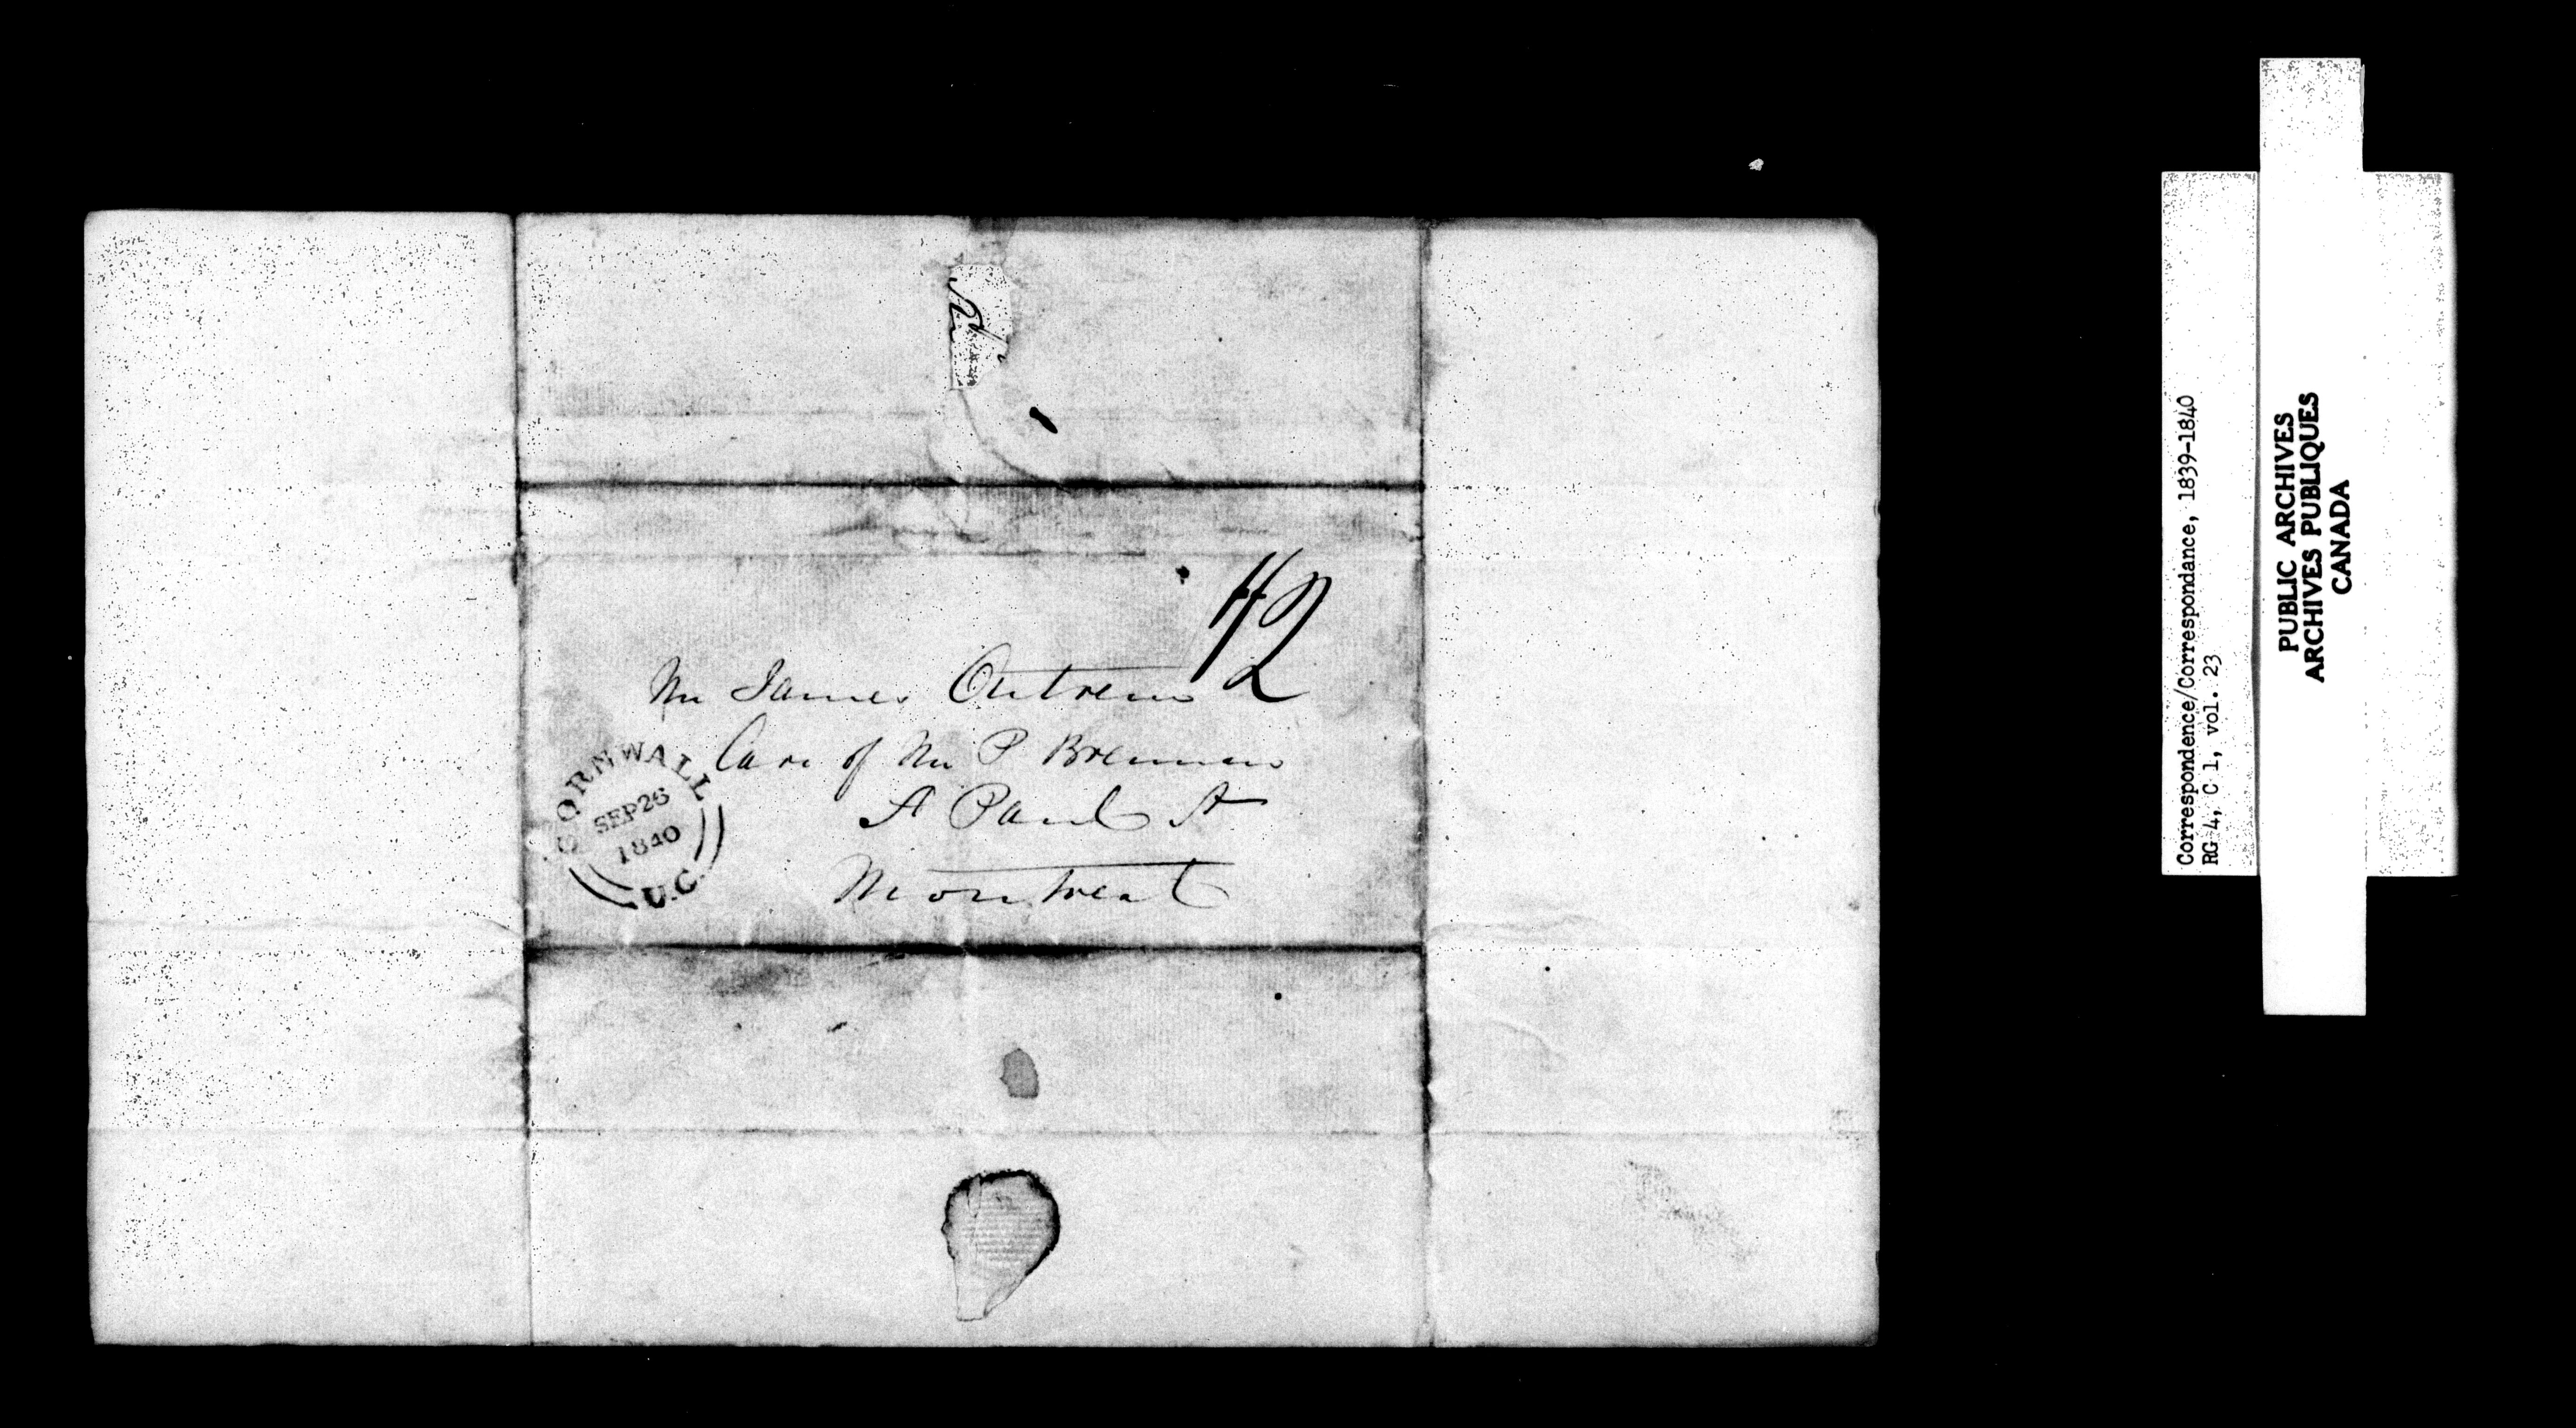 Mr James Outrem
Care of Mr P Brennan
St Paul St
Montreal
CORNWALL
SEP 26
1840
U.C.
Correspondence/Correspondance, 1839-1840
RG 4, C 1, vol. 23
PUBLIC ARCHIVES
ARCHIVES PUBLIQUES
CANADA